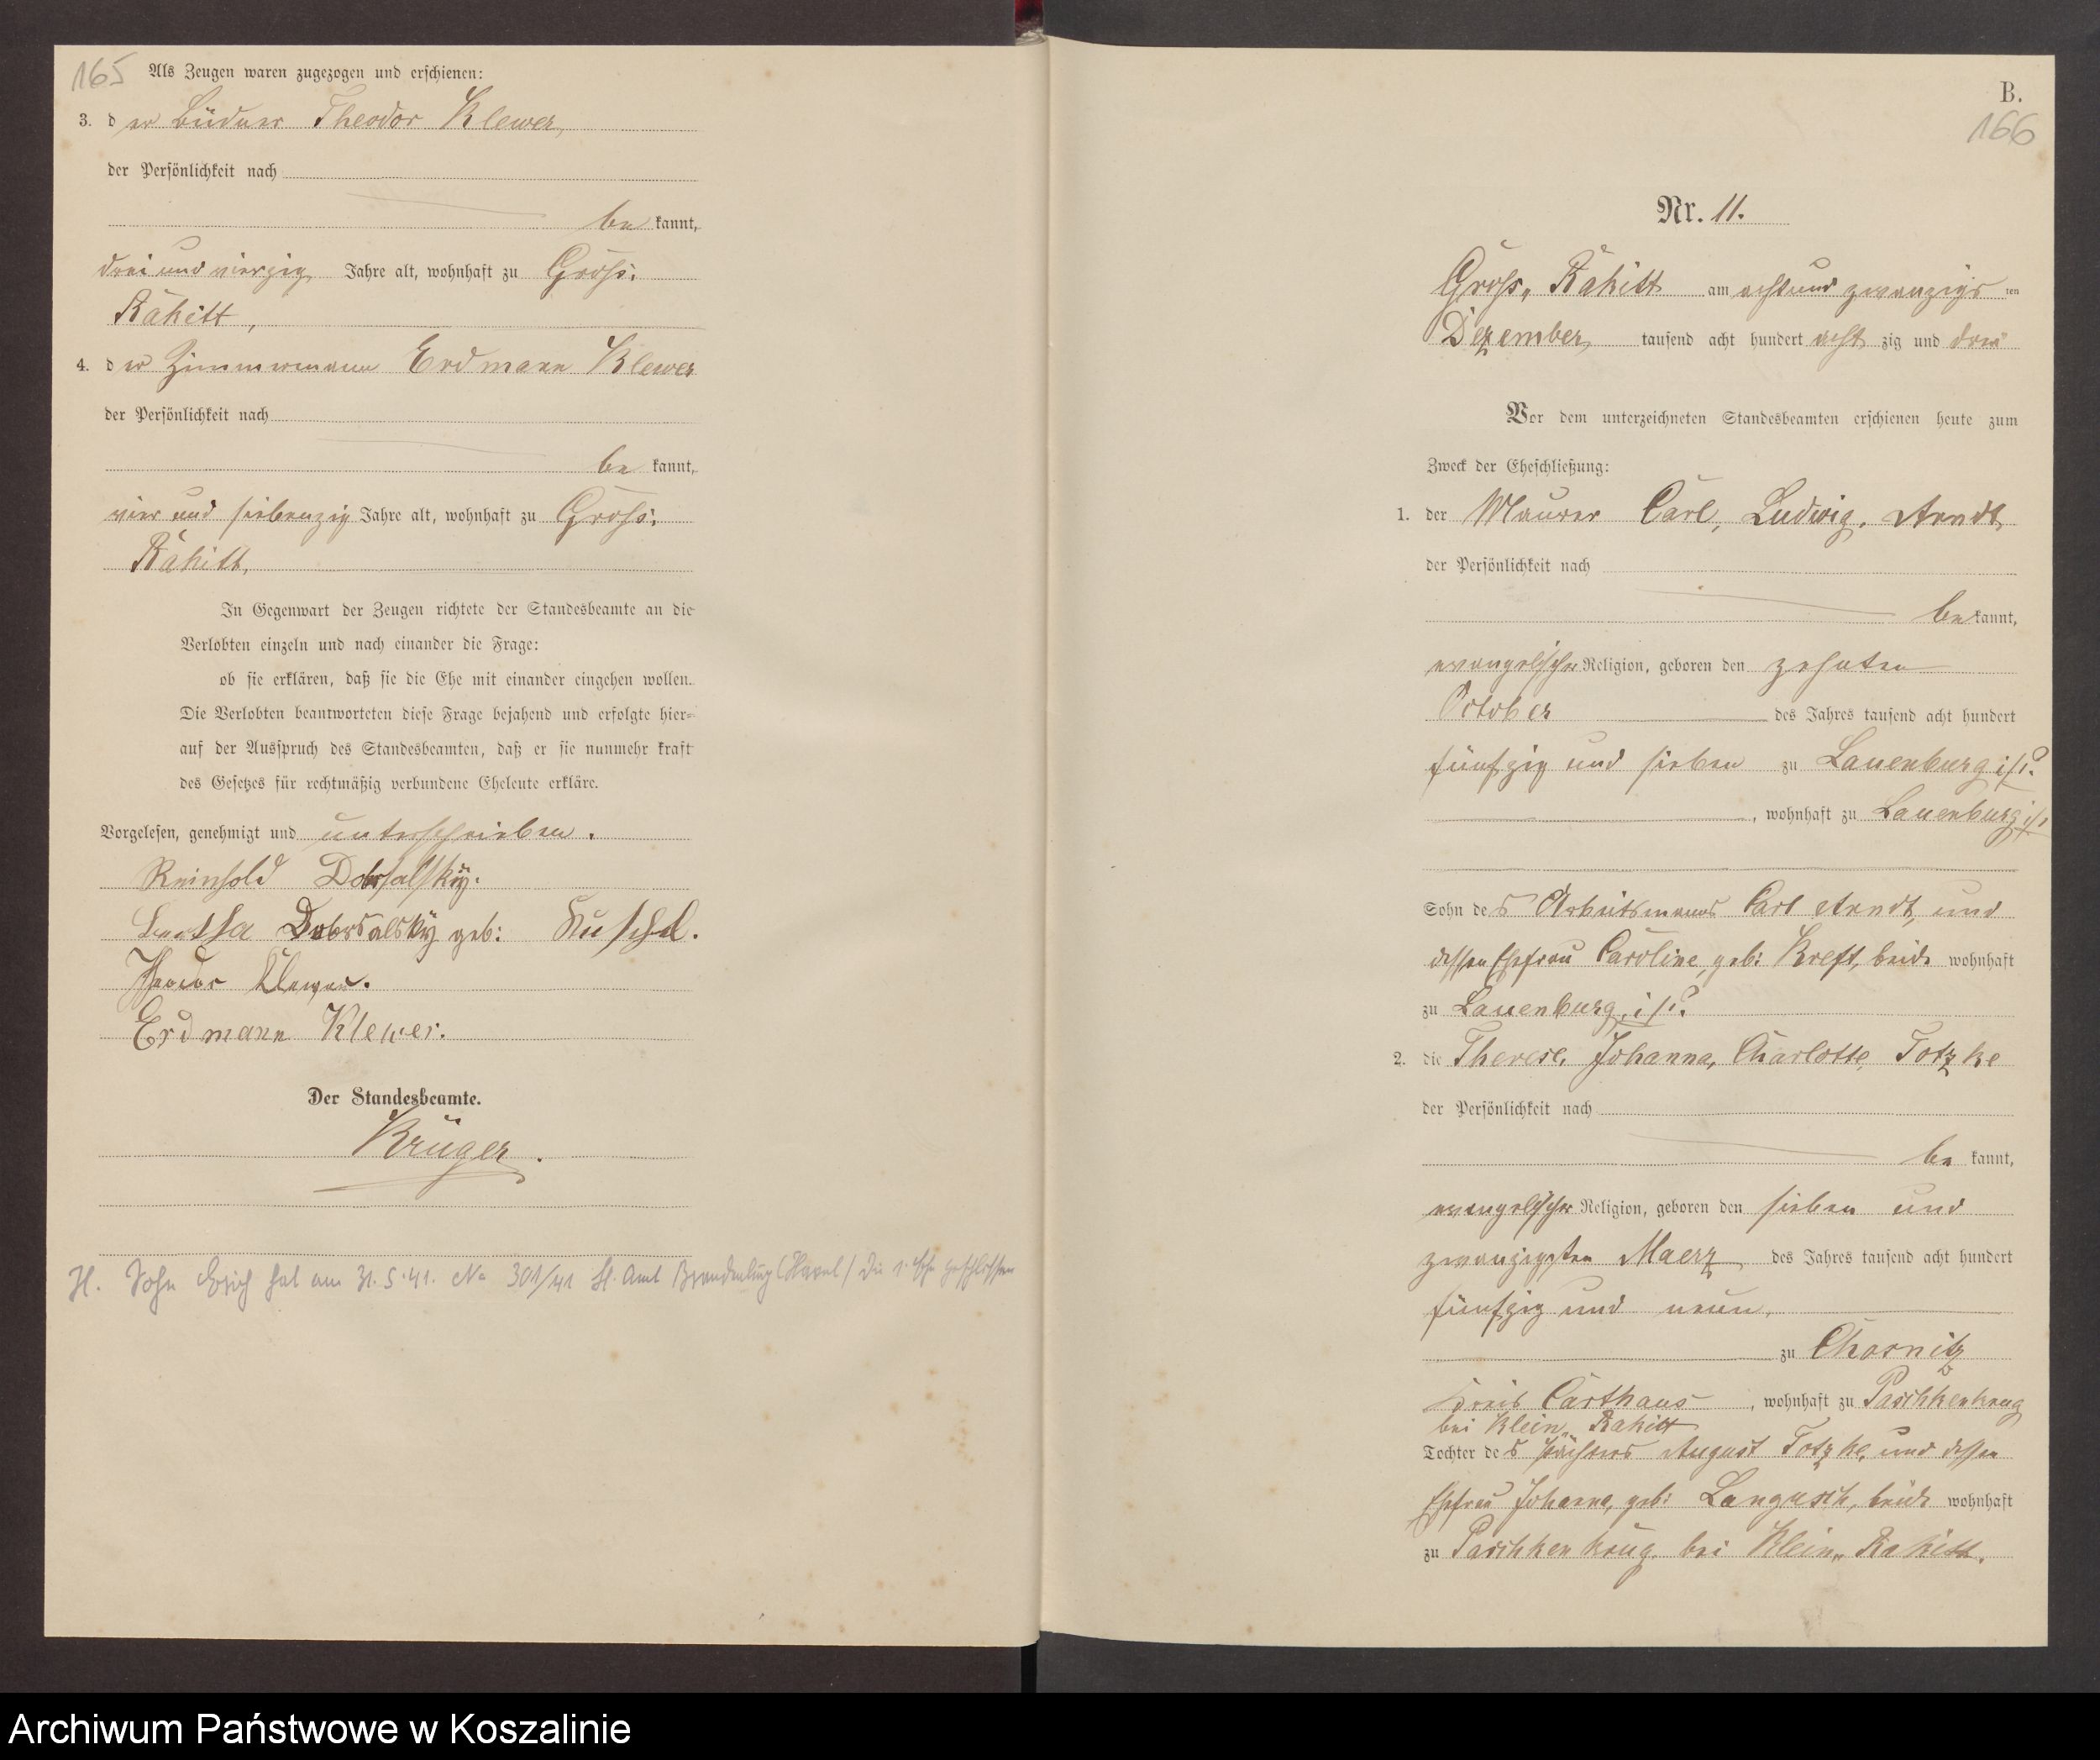 165
Als Zeugen waren zugezogen und erschienen:
3. der Büdner Theodor Klewer,
der Persönlichkeit nach
be kannt,
drei und vierzig Jahre alt, wohnhaft zu Groß.
Rakitt,
4. der Zimmermann Erdmann Klewer
der Persönlichkeit nach
be kannt,
vier und siebenzig Jahre alt, wohnhaft zu Groß.
Rakitt.
In Gegenwart der Zeugen richtete der Standesbeamte an die
Verlobten einzeln und nach einander die Frage:
ob sie erklären, daß sie die Ehe mit einander eingehen wollen.
Die Verlobten beantworteten diese Frage bejahend und erfolgte hier-
auf der Ausspruch des Standesbeamten, daß er sie nunmehr kraft
des Gesetzes für rechtmäßig verbundene Eheleute erkläre.
Vorgelesen, genehmigt und unterschrieben.
Reinhold
geb: Kuschel.
Theodor Klewer.
Erdmann Klewer.
Der Standesbeamte.
Krüger.
H. Sohn Erich hat am 31.5.41. No 301/41 St. Amt Brandenburg (Havel) die 1. Ehe geschlossen
B.
166
Nr. 11.
Groß. Rakitt am acht und zwanzigsten
Dezember tausend acht hundert acht zig und drei
Vor dem unterzeichneten Standesbeamten erschienen heute zum
Zweck der Eheschließung:
1. der Maurer Carl, Ludwig, Arndt
der Persönlichkeit nach
be kannt,
evangelischer Religion, geboren den zehnten
October des Jahres tausend acht hundert
fünfzig und sieben zu Lauenburg i/P.
, wohnhaft zu Lauenburg i/P
Sohn des Arbeitsmanns Carl Arndt, und
dessen Ehefrau Caroline, geb: Kreft, beide wohnhaft
zu Lauenburg, i/P.
2. die Therese, Johanna, Charlotte, Totzke
der Persönlichkeit nach
be kannt,
evangelischer Religion, geboren den sieben und
zwanzigsten Maerz des Jahres tausend acht hundert
fünfzig und neun,
zu Chosnitz
Kreis Carthaus, wohnhaft zu Paschkenkrug
bei Klein. Rakitt
Tochter des Pächters August Totzke, und dessen
Ehefrau Johanna, geb: beide wohnhaft
zu Paschkenkrug bei Klein. Rakitt.
Archiwum Państwowe w Koszalinie